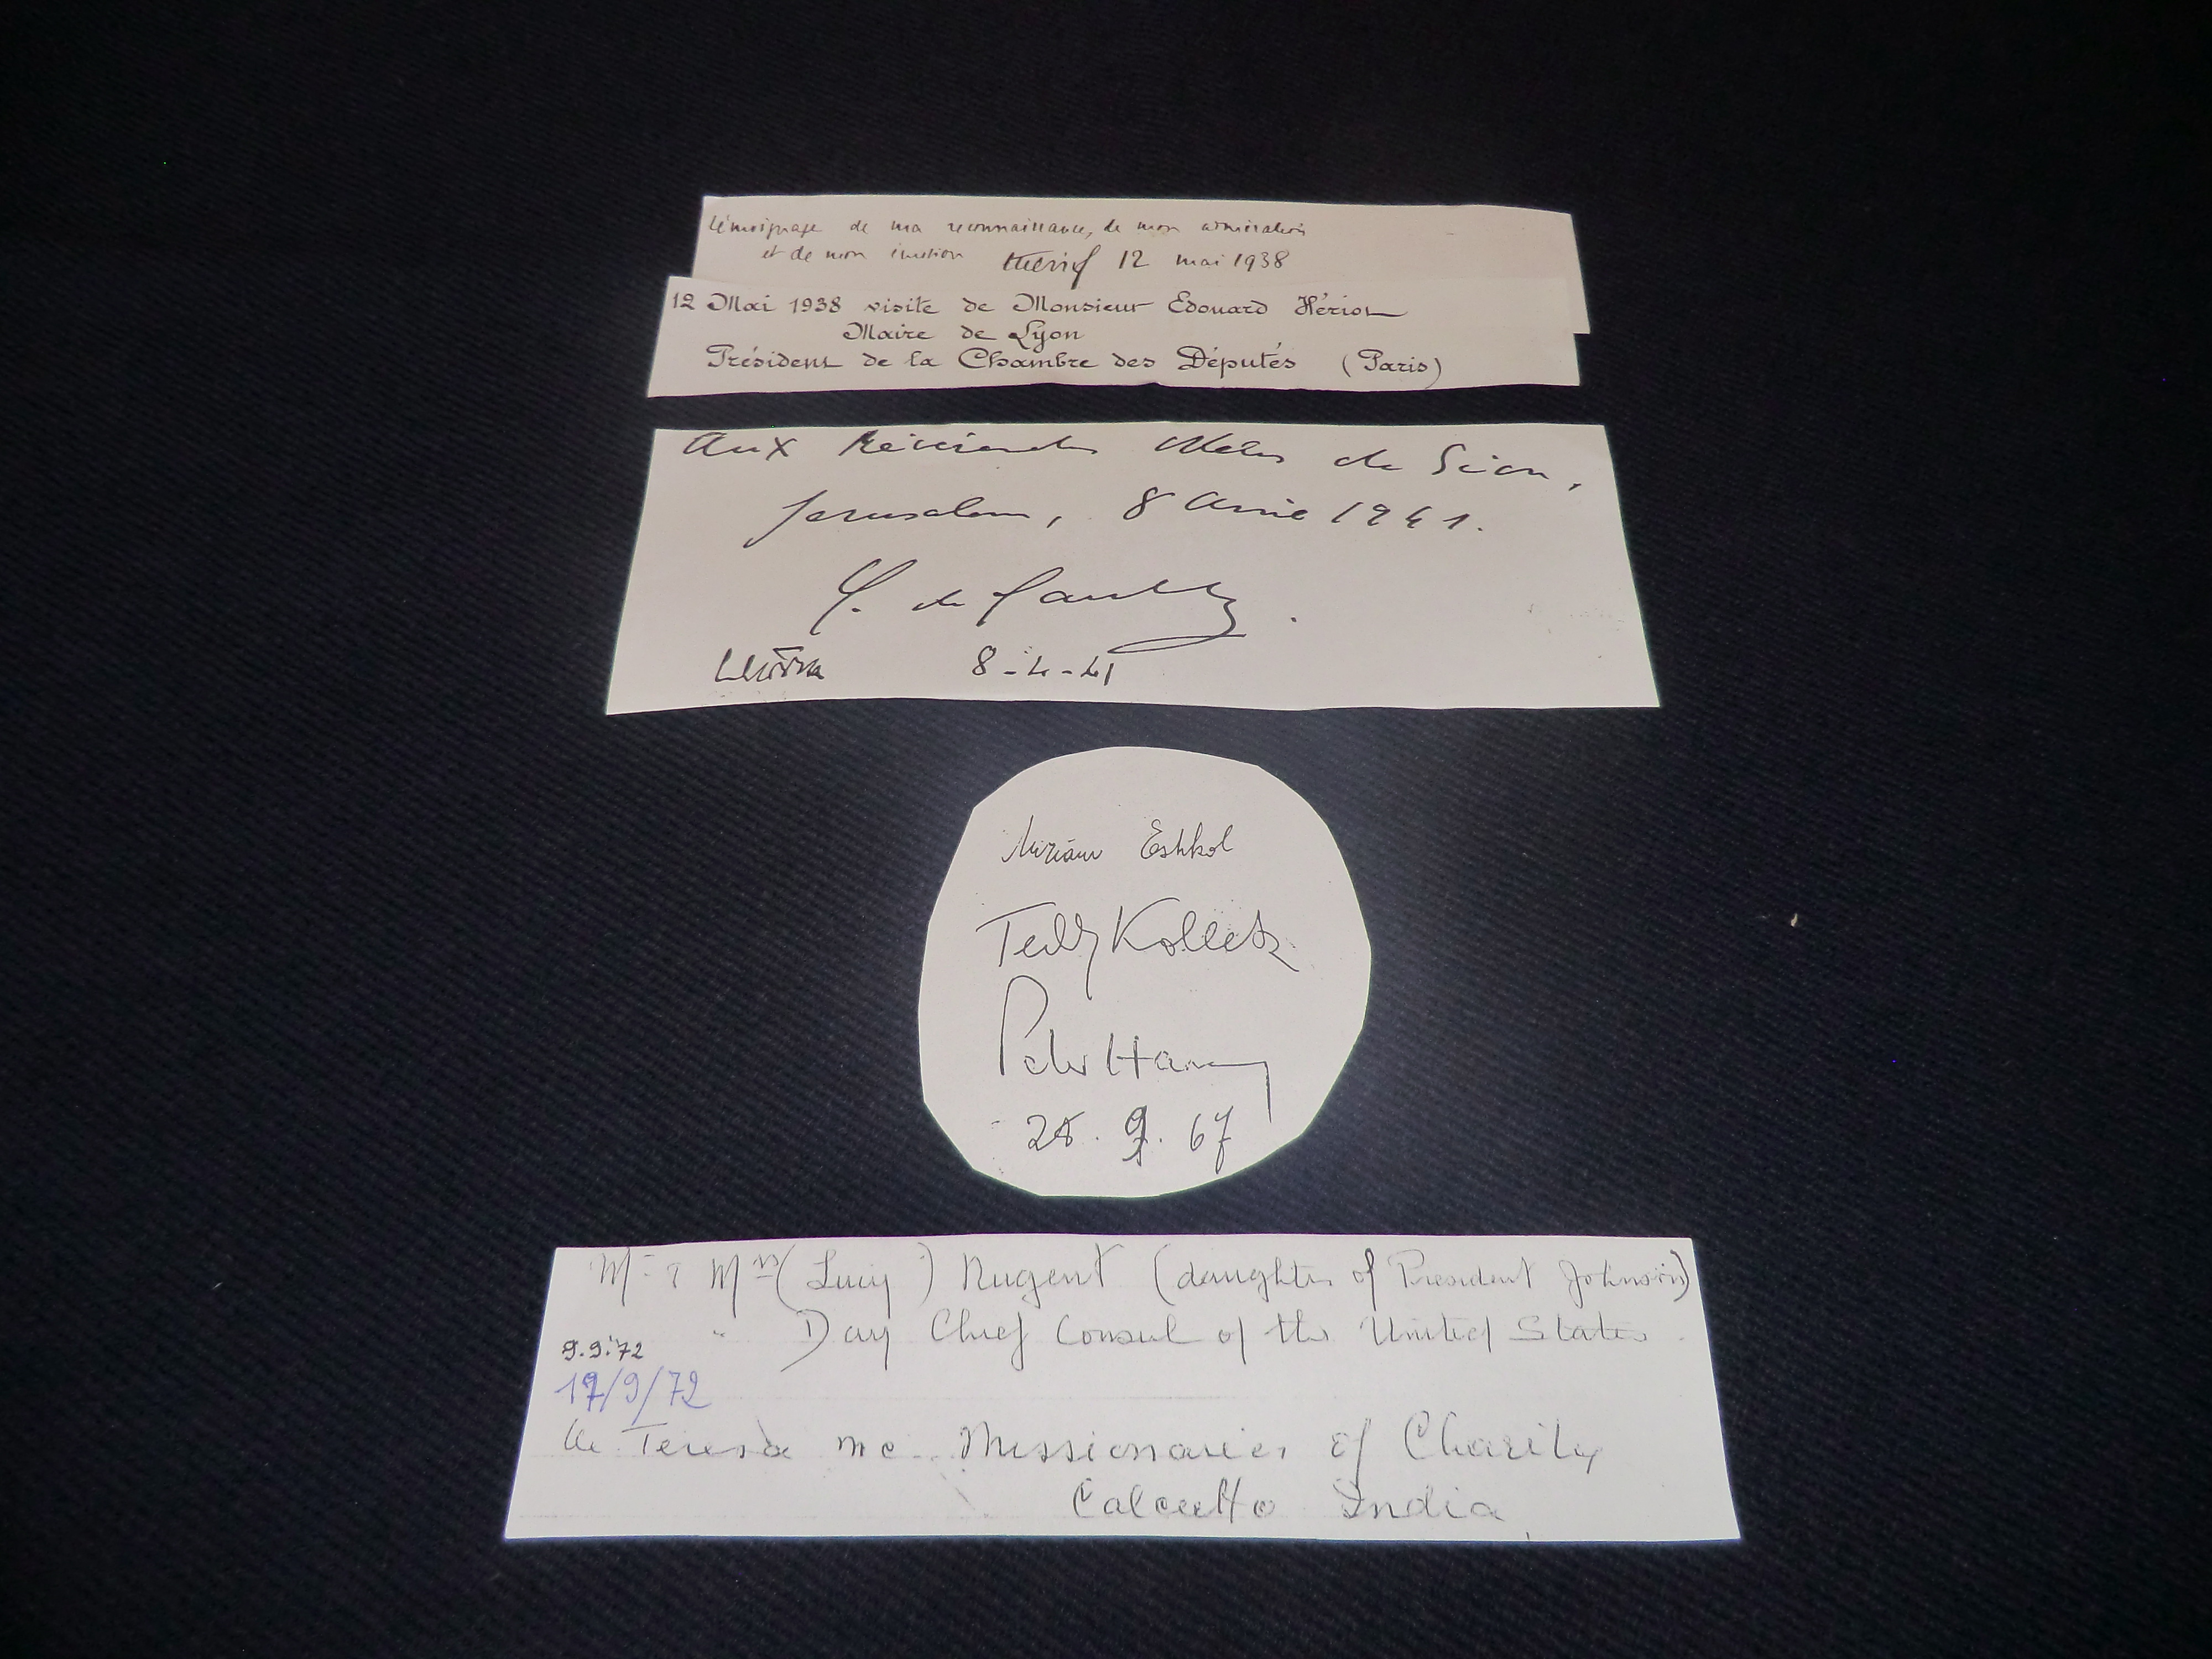 témoignage de ma reconnaissance, de mon admiration
et de mon émotion 12 mai 1938
12 Mai 1938 visite de Monsieur Edouard Hériot
Maire de Lyon
Président de la Chambre des Députés (Paris)
Aux Révérendes Mères de Sion,
Jerusalem, 8 Avril 1941.
C. de Gaulle.
8-4-41
Miriam Eshkol
Teddy Kollek
Peter
9. 67
Mr & Mrs (Lucy) Nugent (daughter of President Johnson)
" Day Chief Consul of the United States.
9.9.'72
/9/72
M. Teresa mc Missionaries of Charity
Calcutta India